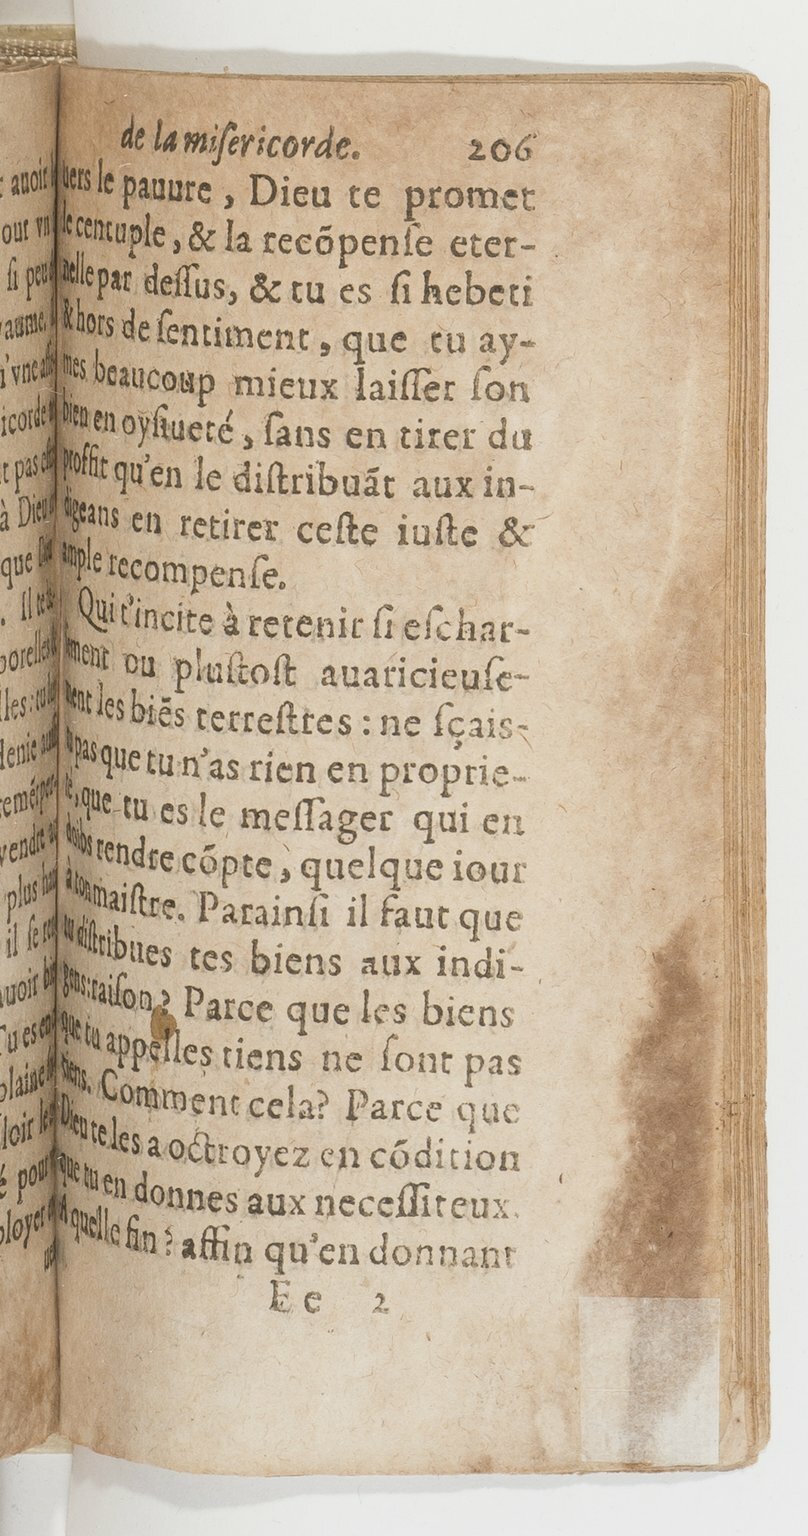 de la miſericorde. 206
uers le pauure, Dieu te promet
le centuple, & la recõpenſe eter-
nelle par deſſus, & tu es ſi hebeti
& hors de ſentiment, que tu ay-
mes beaucoup mieux laiſſer ſon
bien en oyſiueté, ſans en tirer du
proffit qu'en le diſtribuãt aux in-
digeans en retirer ceſte iuſte &
ample recompenſe.
Qui t'incite à retenir ſi eſchar-
ment ou pluſtoſt auaricieuſe-
ment les biẽs terreſtres : ne ſçais-
pas que tu n'as rien en proprie-
té, que tu es le meſſager qui en
doibs rendre cõpte, quelque iour
à ton maiſtre. Parainſi il faut que
tu diſtribues tes biens aux indi-
gens: raiſon? Parce que les biens
que tu appelles tiens ne ſont pas
tiens. Comment cela? Parce que
Dieu te les a octroyez en cõdition
que tu en donnes aux neceſſiteux.
A quelle fin? affin qu'en donnant
Ee 2